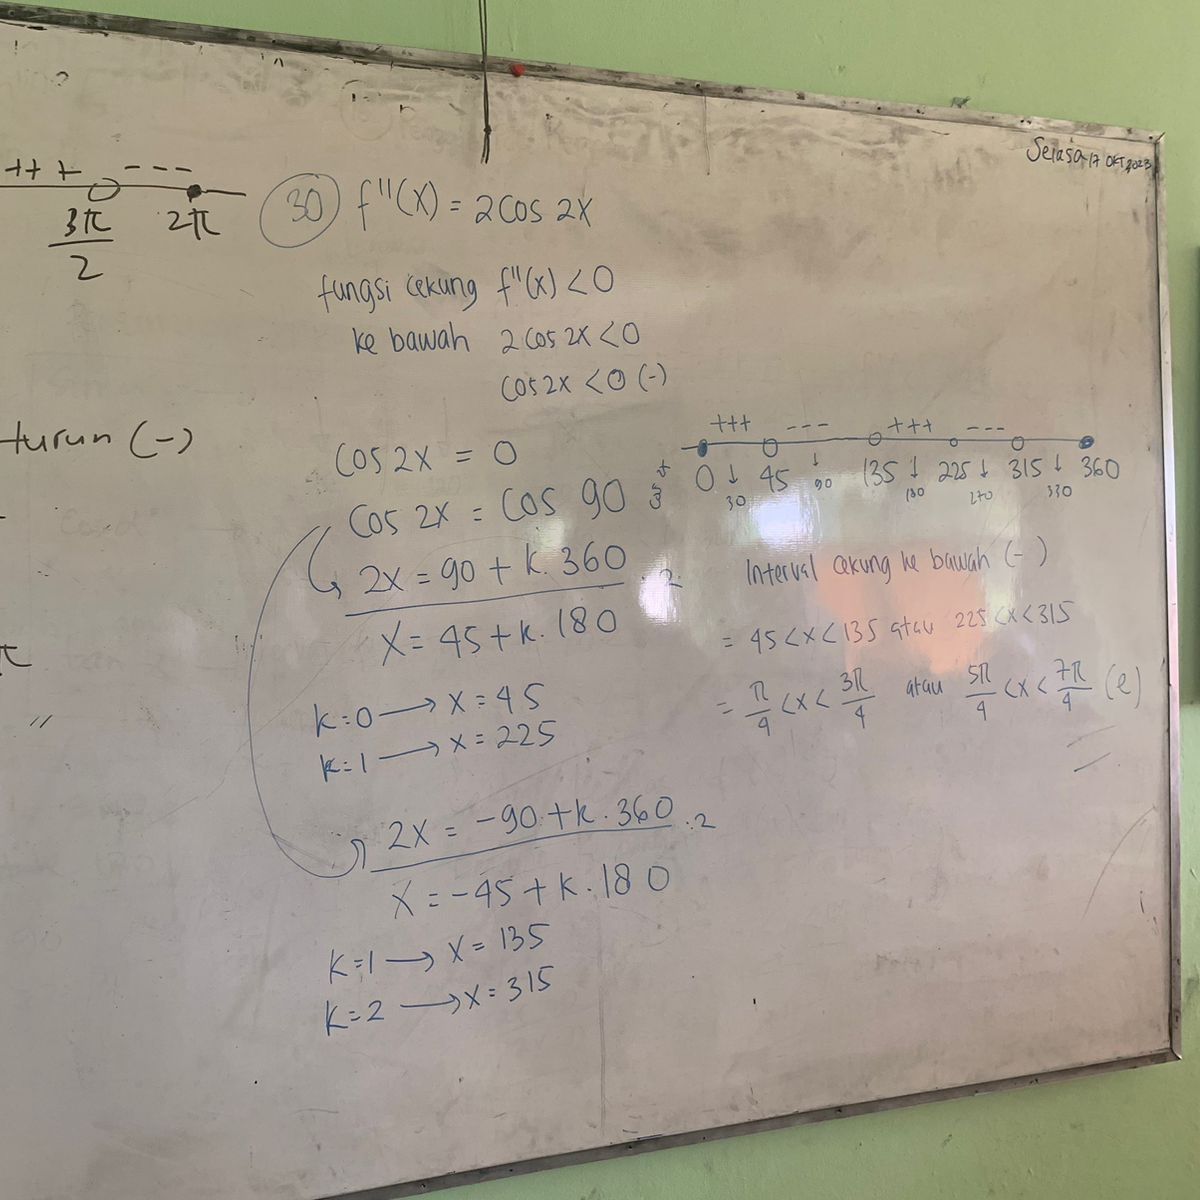 Selasa 17 OKT 2023
+++ ---
3π/2 2π
turun (-)
π
(30) f''(x) = 2 cos 2x
fungsi cekung f''(x) < 0
ke bawah 2 cos 2x < 0
cos 2x < 0 (-)
cos 2x = 0
cos 2x = cos 90
2x = 90 + k. 360 :2
x = 45 + k. 180
k=0 → x = 45
k=1 → x = 225
2x = -90 + k. 360 :2
x = -45 + k. 180
k=1 → x = 135
k=2 → x = 315
+++ --- +++ ---
0 ↓ 45 ↓ 135 ↓ 225 ↓ 315 ↓ 360
30 90 180 270 330
Interval cekung ke bawah (-)
= 45 < x < 135 atau 225 < x < 315
= π/4 < x < 3π/4 atau 5π/4 < x < 7π/4 (e)